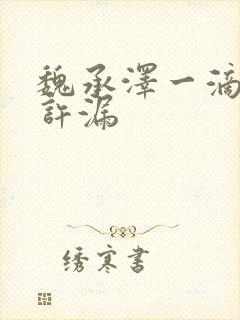 魏承澤一滴
許漏
绣寒書